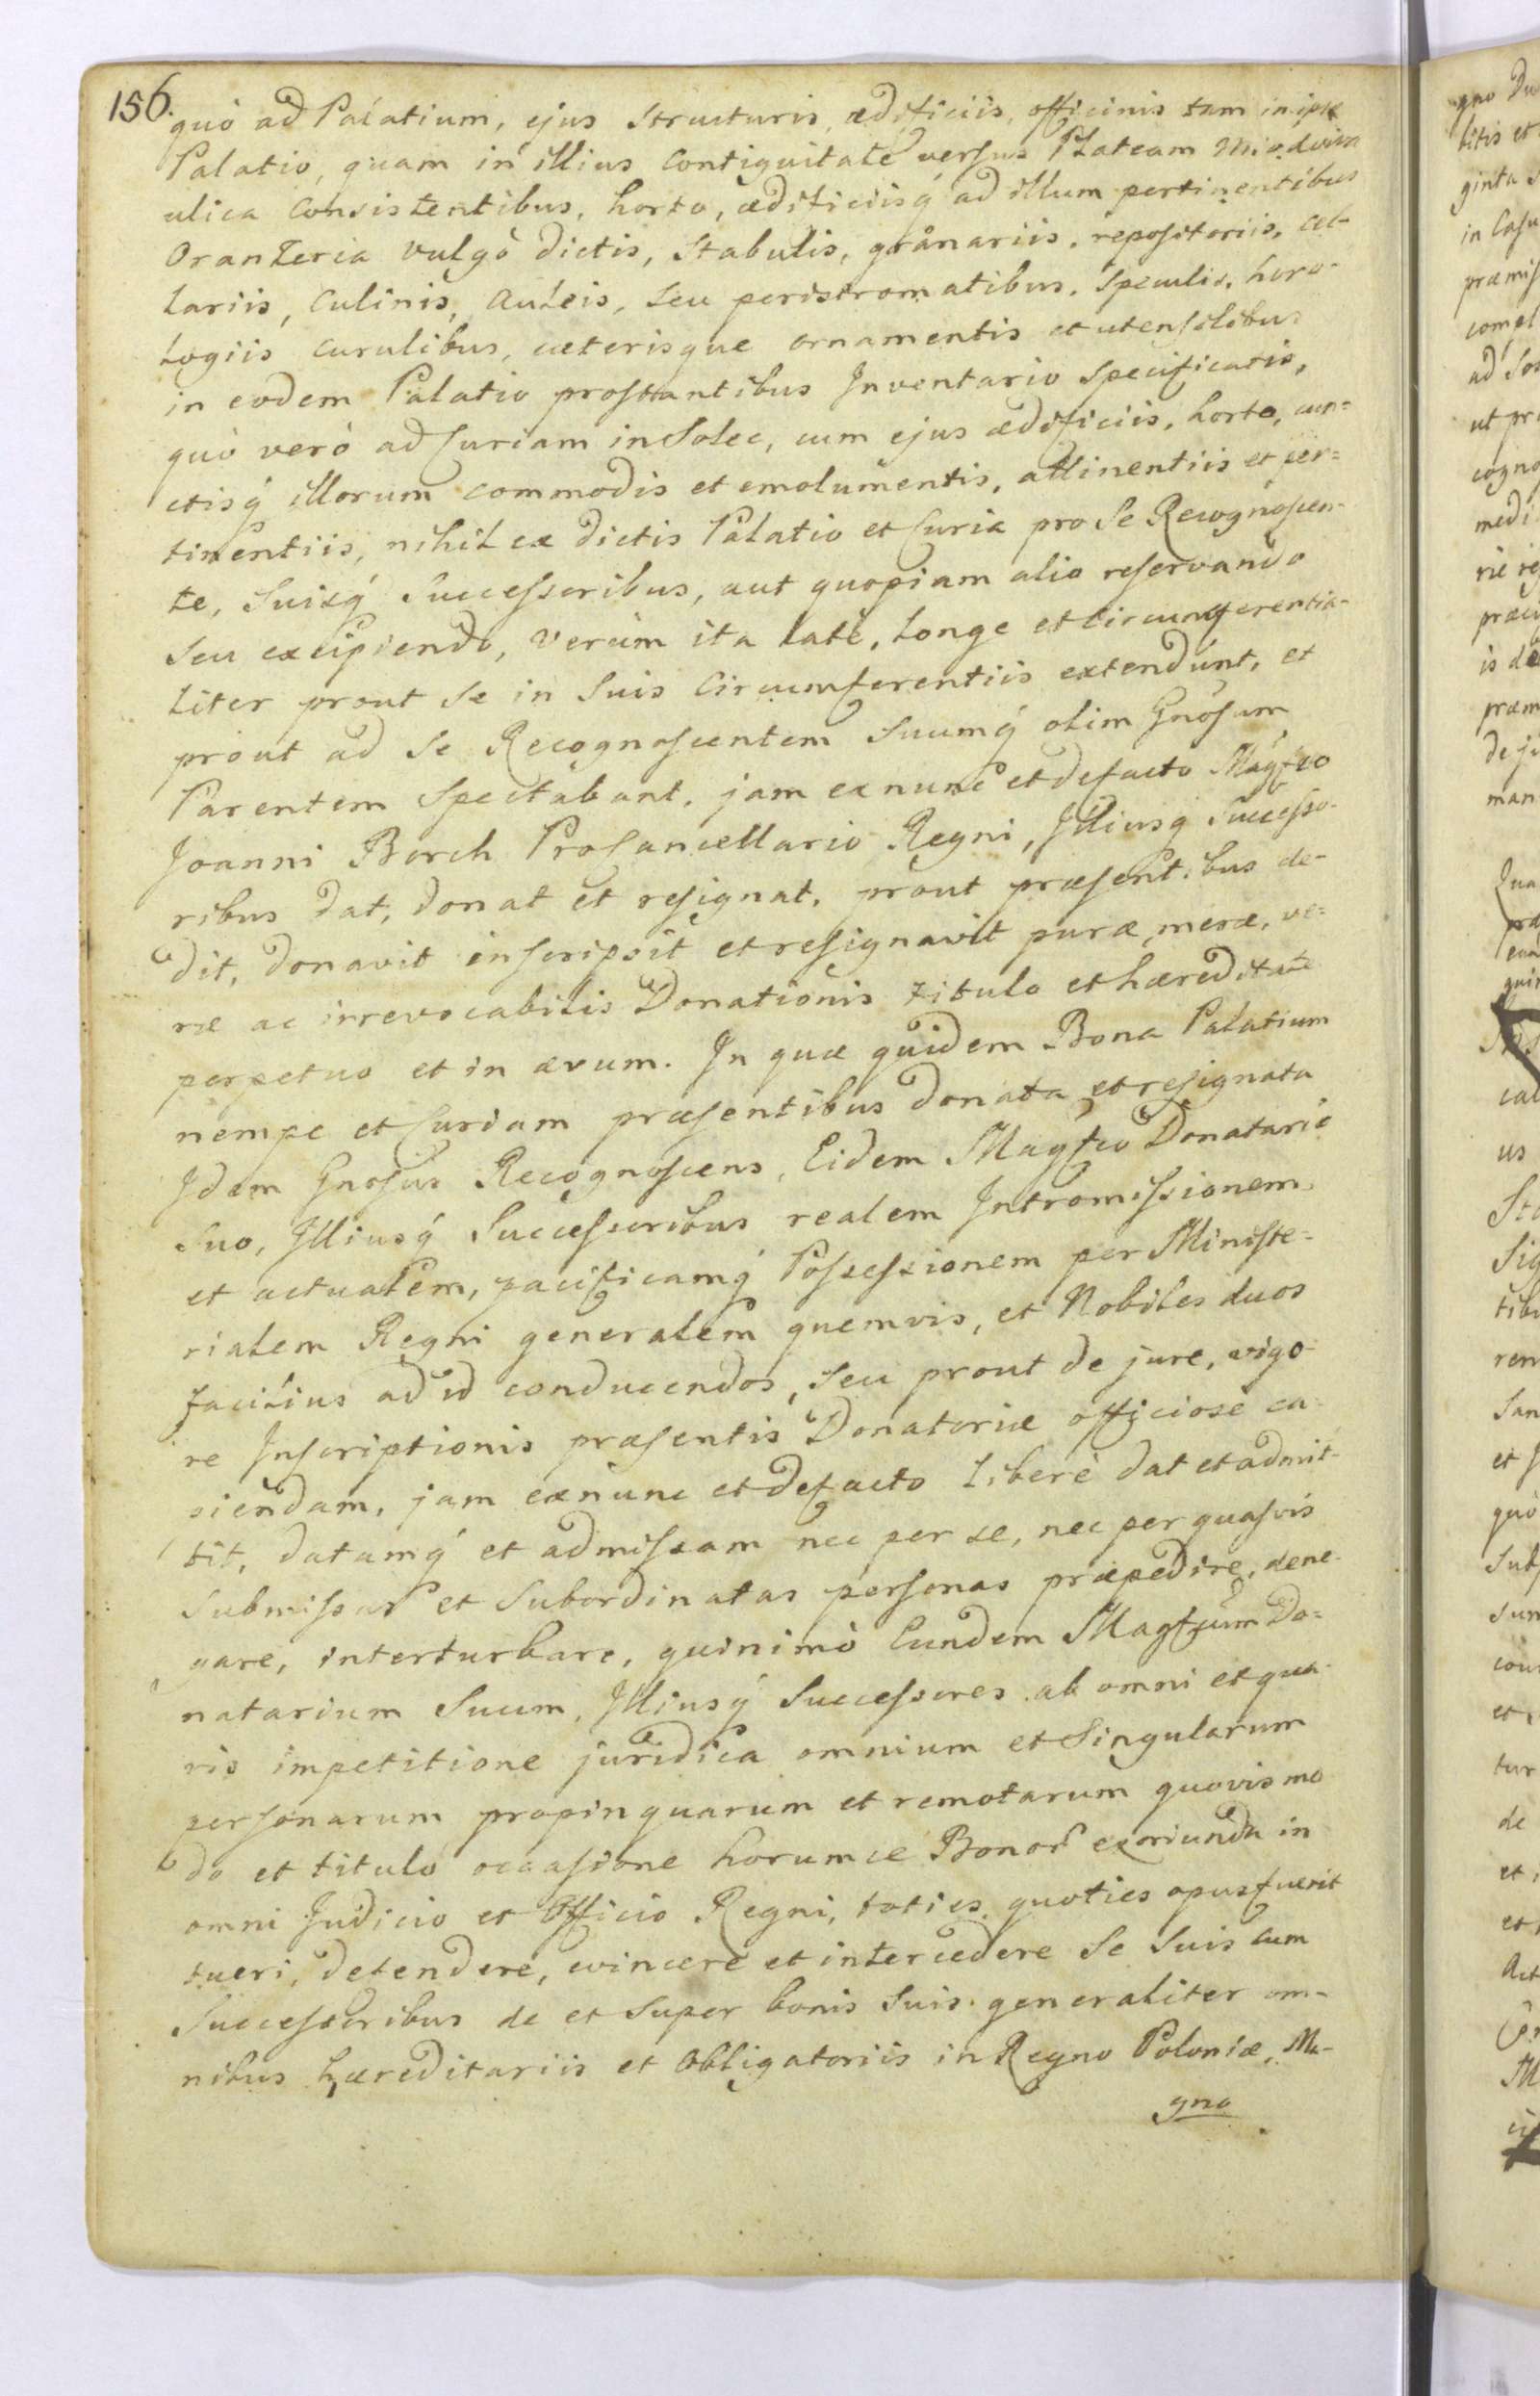 156.
quò ad Palatium, ejus structuris, ædificiis, officinis tam in ipso
Palatio, quam in illius Contiguitate versus Plateam Miodowa
ulica Consistentibus, horto, ædificiisq́ ad illum pertinentibus
Oranżeria vulgò dictis, Stabulis, granariis, repositoriis, cel-
lariis, Culinis, Auleis, seu peristromatibus, Speculis, horo-
logiis curulibus, cæterisque ornamentis et utensilibus
in eodem Palatio prostantibus Inventario Specificatis,
quò verò ad Curiam in Solec, cum ejus ædificiis, horto, cun=
ctisq́ illorum commodis et emolumentis, attinentiis et per=
tinentiis, nihil ex dictis Palatio et Curia pro Se Recognoscen-
te, Suisq́ Successoribus, aut quopiam alio reservando
seu excipiendo, Verùm ita latè, longe et circumferentia-
liter prout Se in Suis Circumferentiis extendunt, et
prout ad Se Recognoscentem Suumq́ olim Gnosum
Parentem Spectabant, jam ex nunc et defacto Magfco
Joanni Borch ProCancellario Regni, Illiusq́ Successo-
ribus dat, donat et resignat, prout præsentibus de-
dit, donavit inscripsit et resignavit puræ, meræ, ve=
ræ ac irrevocabilis Donationis titulo et hæreditate
perpetuo et in ævum. In quæ quidem Bona Palatium
nempe et Curiam præsentibus donata et resignata
Idem Gnosus Recognoscens, Eidem Magfco Donatario
Suo, Illiusq́ Successoribus realem Intromissionem,
et actualem, pacificamq́ Possessionem per Ministe-
rialem Regni generalem quemvis, et Nobiles duos
facilius ad id conducendos, seu prout de jure, vigo-
re Inscriptionis præsentis Donatoriæ officiosè ca-
piendam, jam ex nunc et defacto liberè dat et admit-
tit, datamq́ et admissam nec per se, nec per quasvis
submissas et Subordinatas personas præpedire, dene-
gare, interturbare, quinimò Eundem Magfcum Do=
natarium Suum, Illiusq́ Successores ab omni et qua-
vis impetitione juridica omnium et Singularum
personarum propinquarum et remotarum quovis mo
do et titulo occasione horumce Bonor exoriunda in
omni Judicio et Officio Regni, toties quoties opus fuerit
tueri, defendere, evincere et intercedere Se Suis cum
Successoribus de et Super bonis Suis generaliter om-
nibus hæreditariis et Obligatoriis in Regno Poloniæ, Ma-
gno